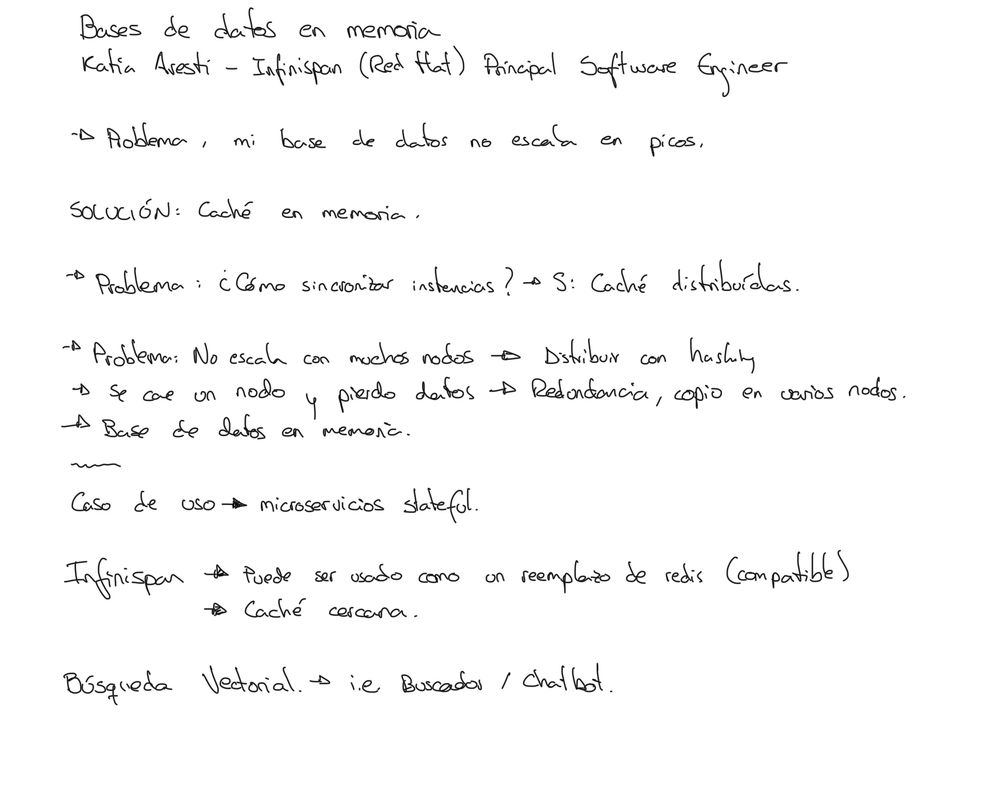 Bases de datos en memoria
Katia Aresti - Infinispan (Red Hat) Principal Software Engineer
→ Problema, mi base de datos no escala en picos.
SOLUCIÓN: Caché en memoria.
→ Problema: ¿Cómo sincronizar instancias? → S: Caché distribuídas.
→ Problema: No escala con muchos nodos → Distribuir con hashing
→ Se cae un nodo y pierdo datos → Redondancia, copio en varios nodos.
→ Base de datos en memoria.
Caso de uso → microservicios stateful.
Infinispan → Puede ser usado como un reemplazo de redis (compatible)
→ Caché cercana.
Búsqueda Vectorial. → i.e Buscador / Chatbot.